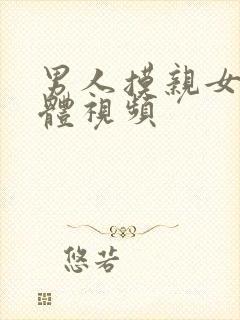 男人摸親女
體視頻
悠若